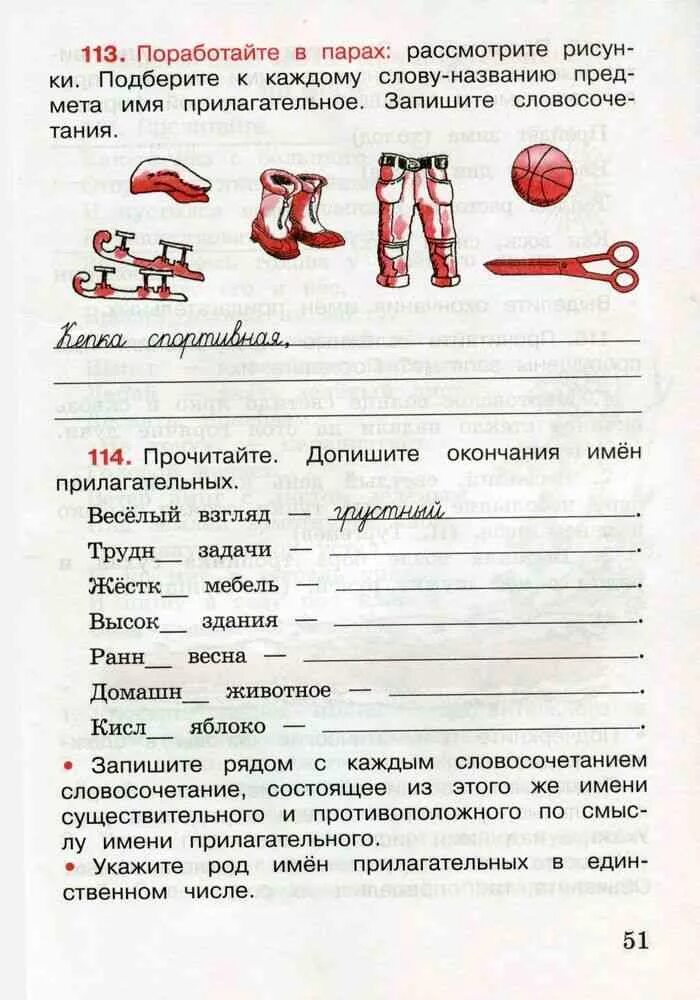 113. Поработайте в парах: рассмотрите рисун-
ки. Подберите к каждому слову-названию пред-
мета имя прилагательное. Запишите словосоче-
тания.
Кепка спортивная,
114. Прочитайте. Допишите окончания имён
прилагательных.
Весёлый взгляд — грустный .
Трудн__ задачи — .
Жёстк__ мебель — .
Высок__ здания — .
Ранн__ весна — .
Домашн животное — .
Кисл__ яблоко — .
• Запишите рядом с каждым словосочетанием
словосочетание, состоящее из этого же имени
существительного и противоположного по смыс-
лу имени прилагательного.
• Укажите род имён прилагательных в един-
ственном числе.
51